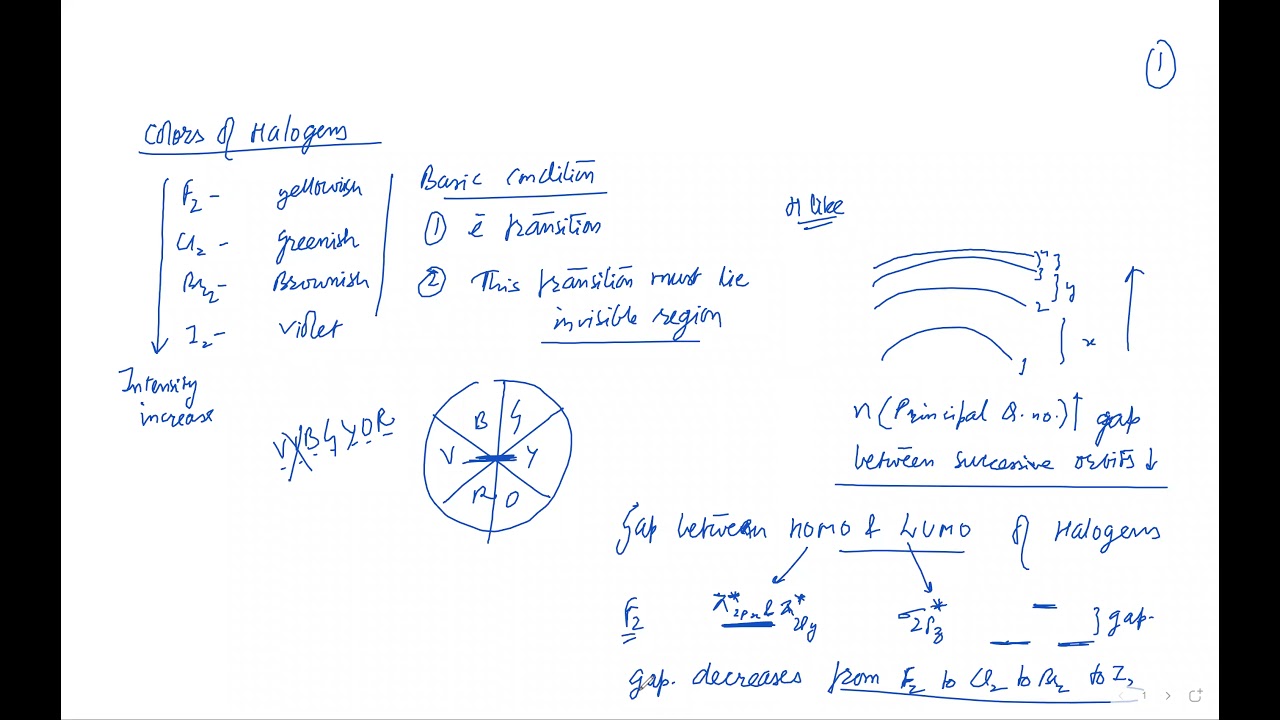 1
Colors of Halogens
F2 - yellowish
Cl2 - Greenish
Br2 - Brownish
I2 - violet
Intensity
increase
Basic condition
1 ē transition
2 This transition must lie
invisible region
VIBGYOR
B G
V Y
R O
H like
4
3 } z
2 } y
1 } x
n (Principal Q. no.) ↑ gap
between successive orbits ↓
Gap between HOMO & LUMO of Halogens
F2 π*2px & π*2py σ*2pz } gap.
gap. decreases from F2 to Cl2 to Br2 to I2
1